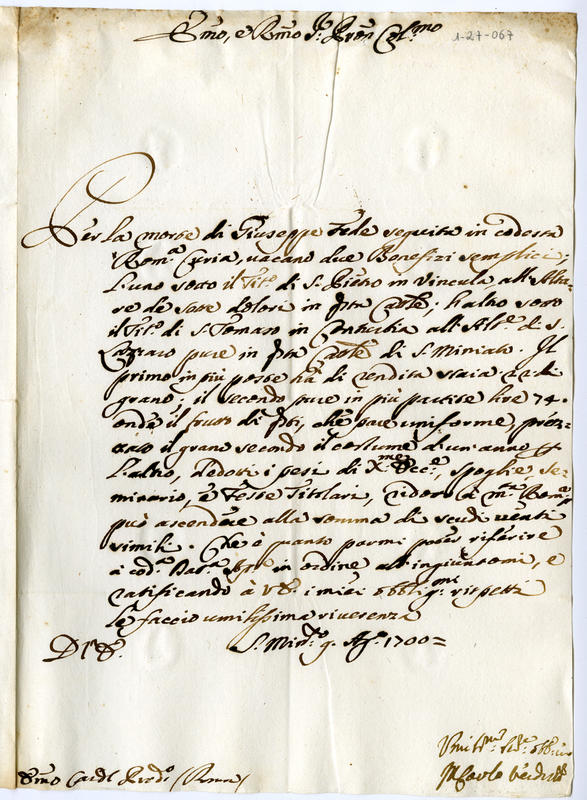 Emo, e Rmo Sr. Pron Colmo
1-27-067
Per la morte di Giuseppe Fede seguita in codesta
Roma. Curia, vacano due Benefizi semplici;
L'uno sotto il Tito. di S. Pietro in Vincula all'Alta-
re de sette dolori in qta Catle; l'altro sotto
il Tito. di S. Tomaso in all'Alte. di S.
Lazzaro pure in qta Catle di S. Miniato. Il
primo in più poste ha di rendita staia
grano; il secondo pure in più partite lire 74.
onde il frutto di qti, che pare uniforme, prez-
zato il grano secondo il costume d'un anno pr
L'altro, dedotti i pesi di Xme, Messe, spoglie, se-
minario, e Feste Titolari, ridotto à mta Romna
può ascendere alla somma di scudi venti
simili. Che è quanto parmi poter riferire
à coda. Data. in ordine all'ingiuntomi, e
ratificando à V. E. i miei obbligmi rispetti
le faccio umilissima riverenza
D. V. E. S. Minto. 9. Ago. 1700=
Emo Cardl Prodo (Roma)